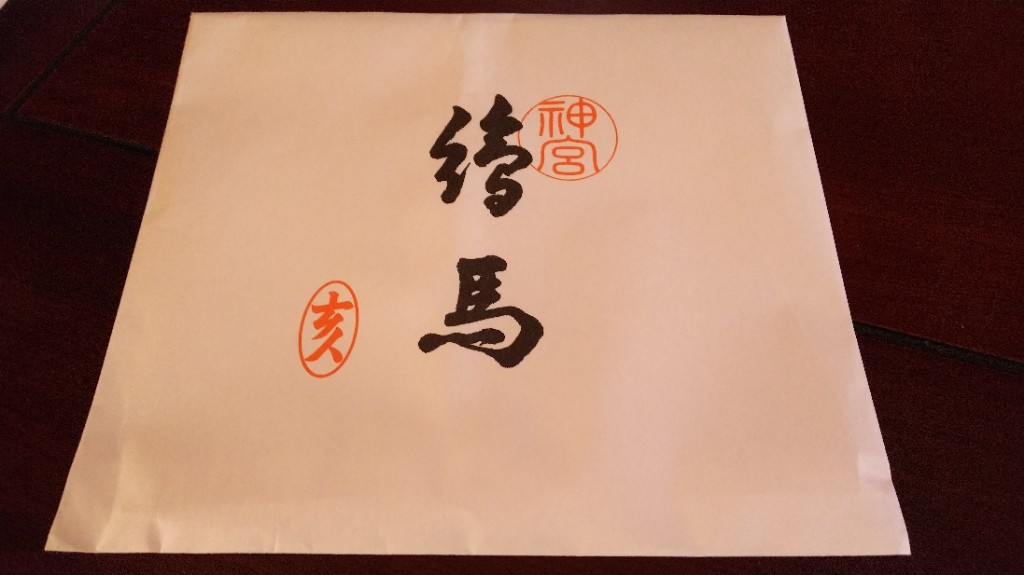 神宮
繪馬
亥